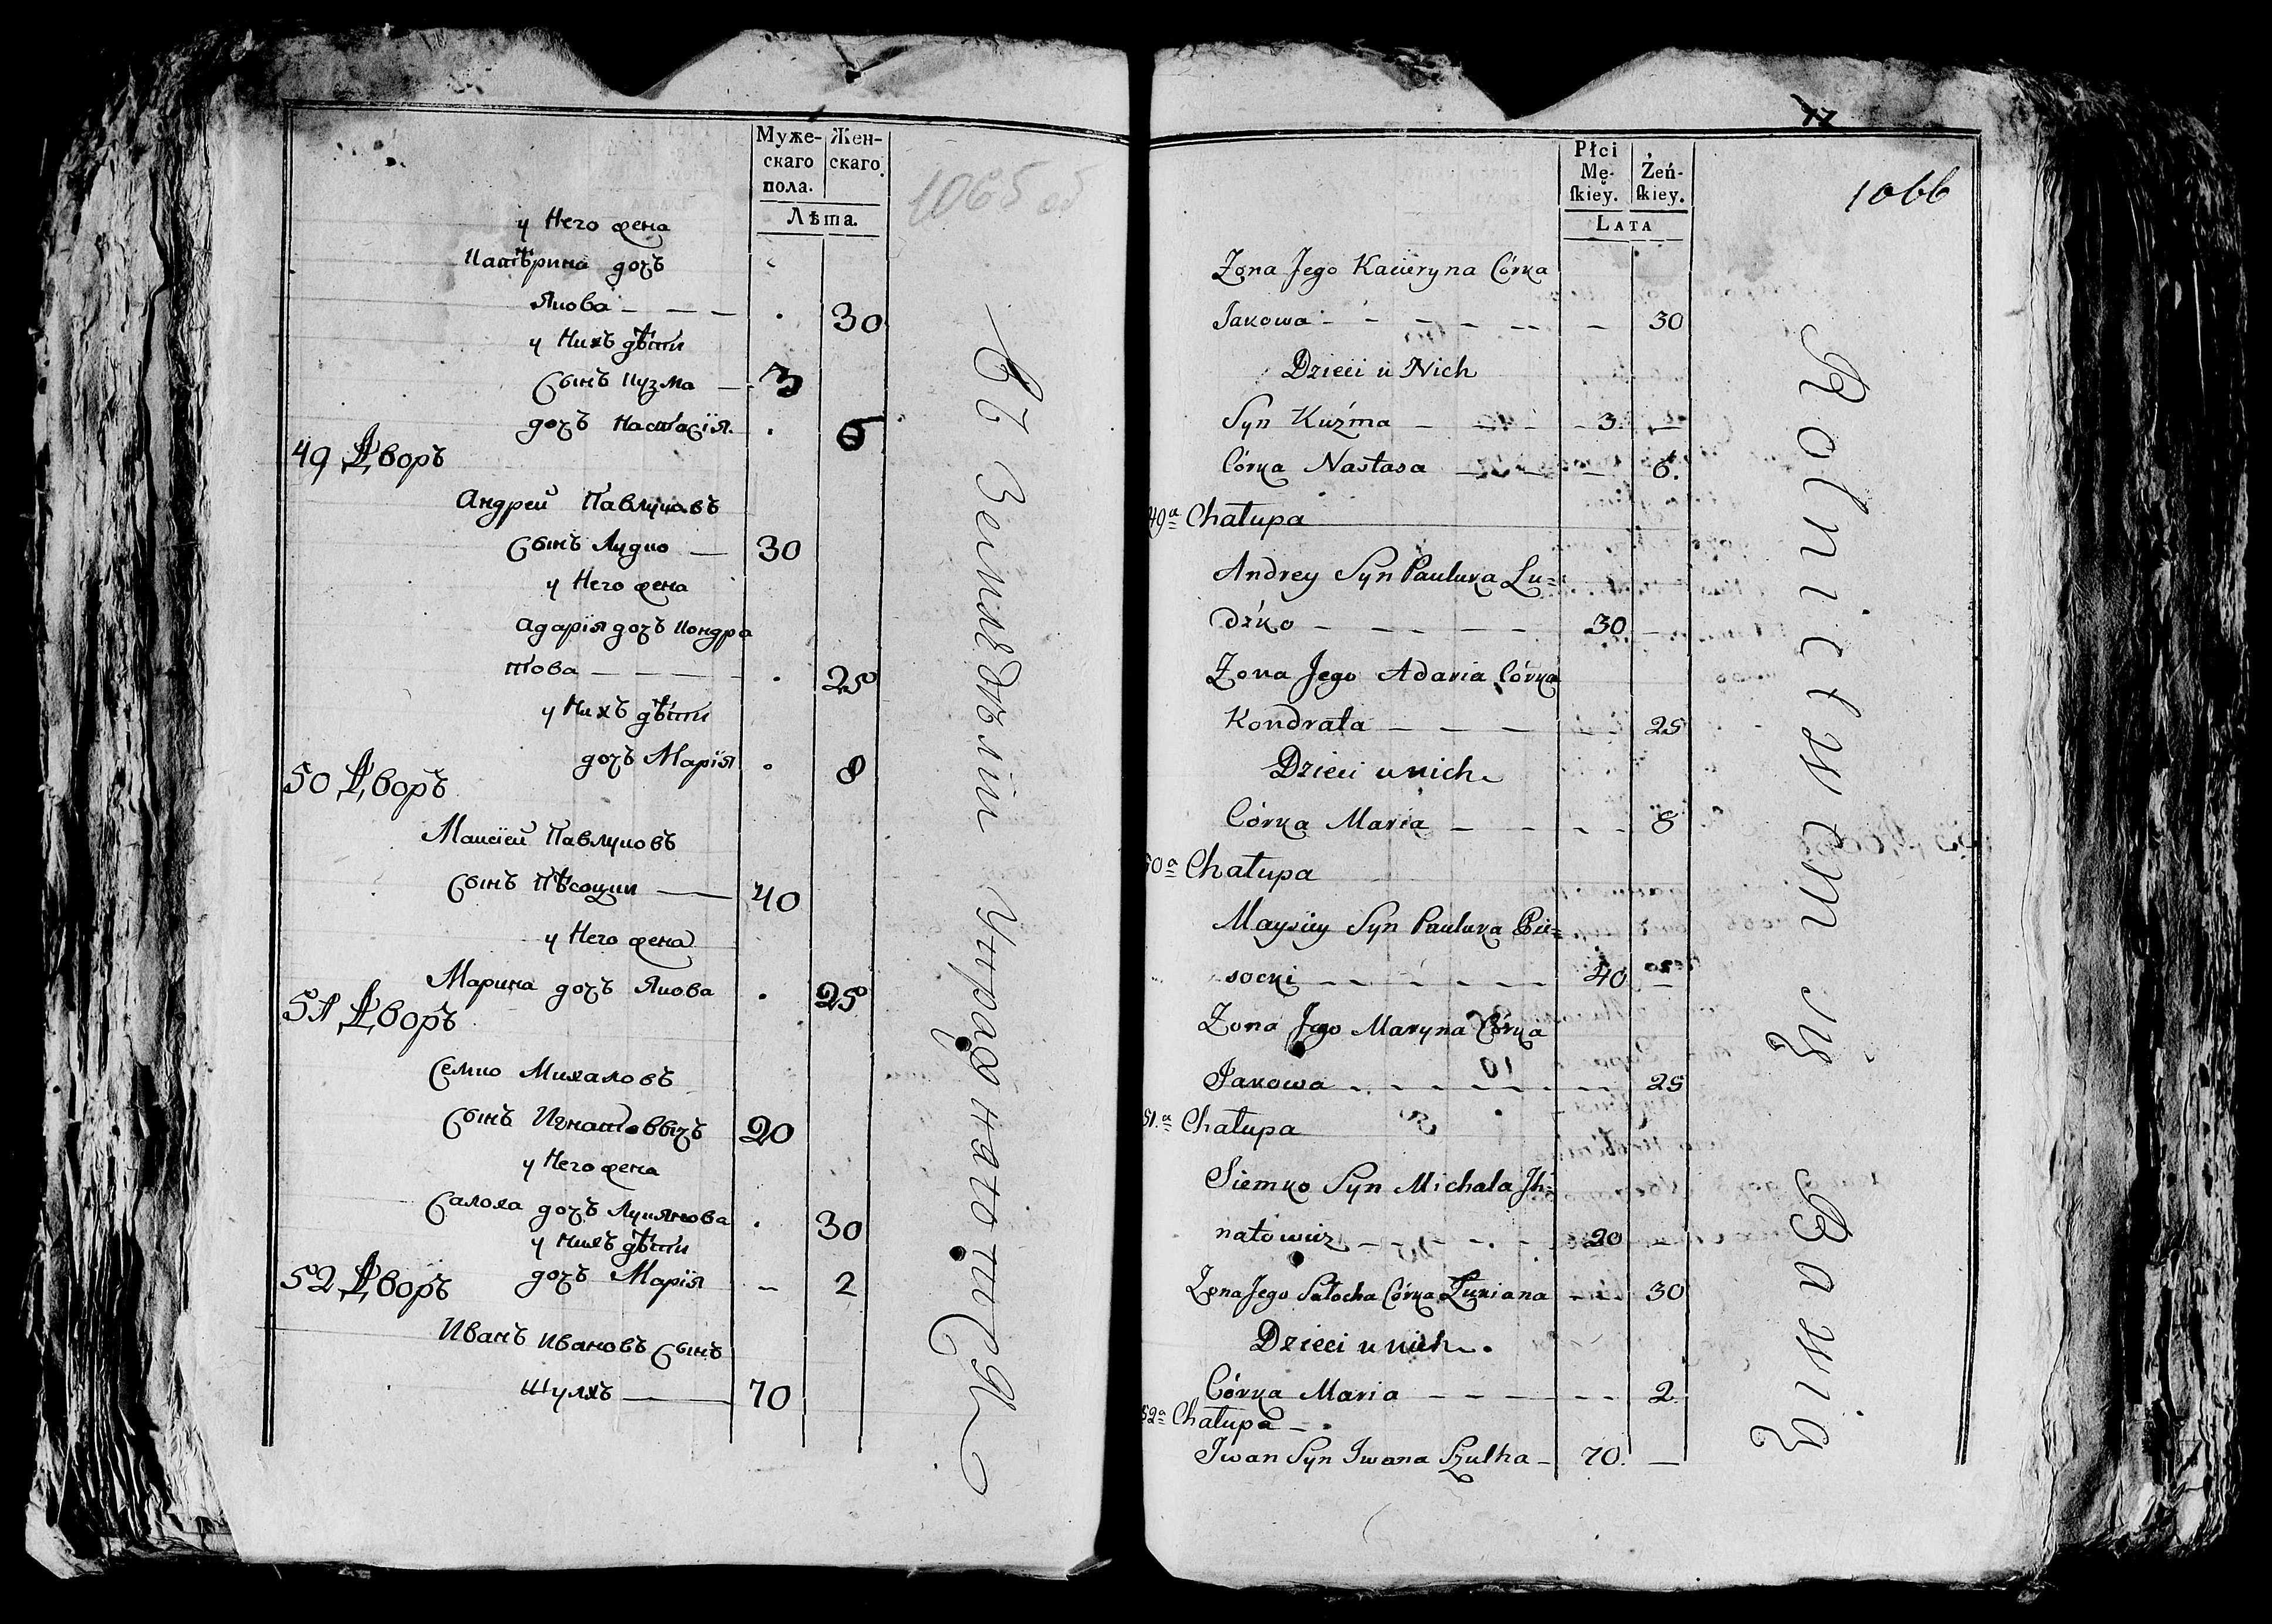 Муже-
скаго
пола.
Жен-
скаго.
Лѣта.
1065 об
у Него жена
Катѣрина дочъ
Якова — — — . 30
у Нихъ дѣти
Сынъ Кузма — 3
дочъ Настасія . 6
49 Дворъ
Андрей Павлуковъ
Сынъ Лудко — 30
у Него жена
Адарія дочъ Кондра
това — — — — . 25
у Нихъ дѣти
дочъ Марія . 8
50 Дворъ
Маисіей Павлуковъ
Сынъ Пѣсоцки — 40
у Него жена
Марина дочъ Якова . 25
51 Дворъ
Семко Михаловъ
Сынъ Игнатовичъ 20
у Него жена
Салоха дочъ Лукянова . 30
у Нихъ дѣти
дочъ Марія — 2
52 Дворъ
Иванъ Ивановъ Сынъ
Шулхъ — 70
Въ Земледѣліи Упражнаютца
77
1066
Płci
Mę-
skiey.
Żeń-
skiey.
LATA
Żona Jego Kacieryna Córka
Jakowa - - - - - - - 30
Dzieci u Nich
Syn Kuźma - - - - 3. —
Córka Nastasa - - - - 6.
49ª Chałupa
Andrey Syn Pauluka Lu=
dźko - - - - - 30. —
Żona Jego Adaria Córka
Kondrata - - - - - 25
Dzieci u nich
Córka Maria - - - - - 8
50ª Chałupa
Maysiey Syn Pauluka Pie=
socki - - - - - - 40 —
Żona Jego Maryna Córka
Jakowa - - - - - - - 25
51.ª Chałupa
Siemko Syn Michała Ih=
natowicz - - - - - 20 —
Żona Jego Sałocha Córka Łukiana - - 30
Dzieci u nich.
Córka Maria - - - - - 2.
52ª Chałupa -
Iwan Syn Iwana Szulha - 70. —
Rolnictwem się Bawią